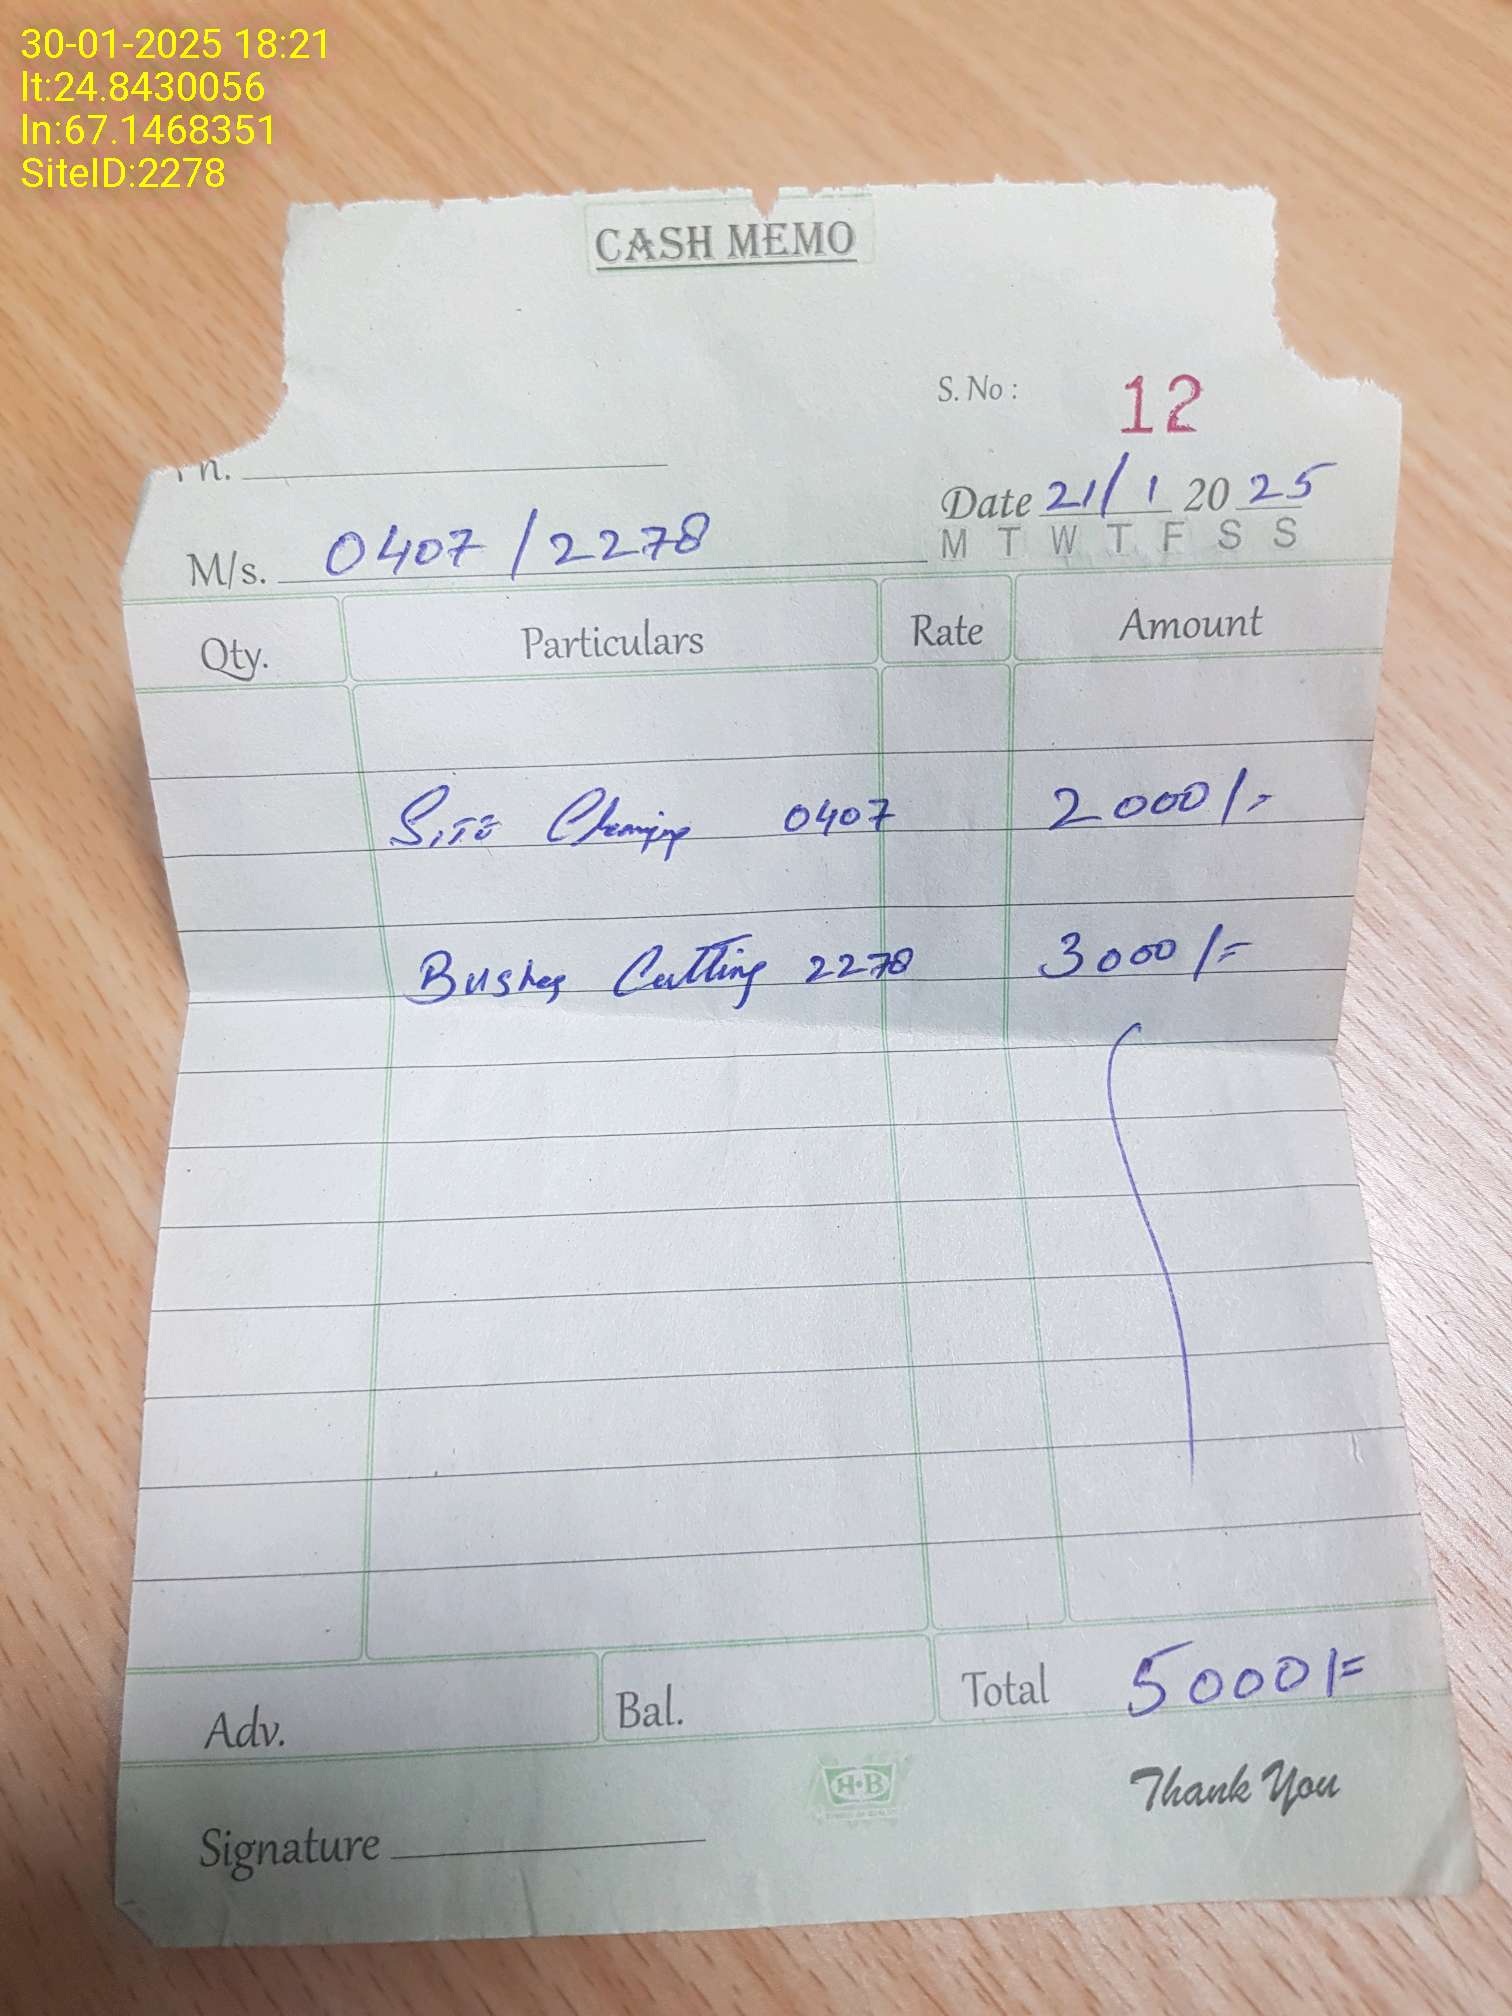 30-01-2025 18:21
lt:24.8430056
ln:67.1468351
SiteID:2278
CASH MEMO
S. No : 12
Ph.
Date 21/1 2025
M/s. 0407/2278
M T W T F S S
Qty. Particulars Rate Amount
Site 0407 2000/-
Bushes Cutting 2278 3000/=
Adv. Bal. Total 5000/=
H·B
Thank You
Signature